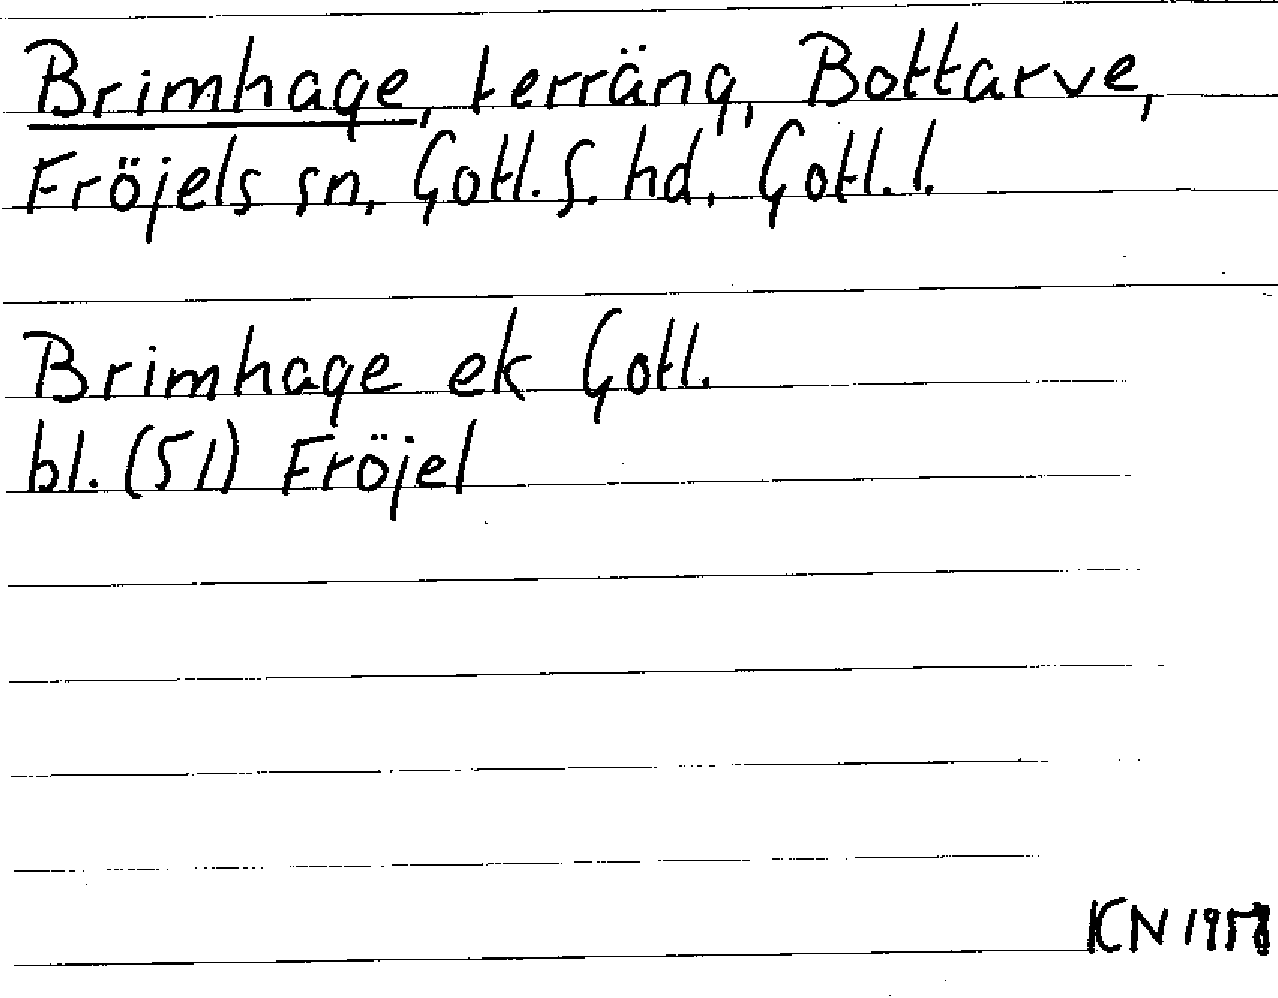 Brimhage, terräng, Bottarve,
Fröjels sn, Gotl. S. hd, Gotl. l.
Brimhage ek Gotl.
bl. (51) Fröjel
KN 1958